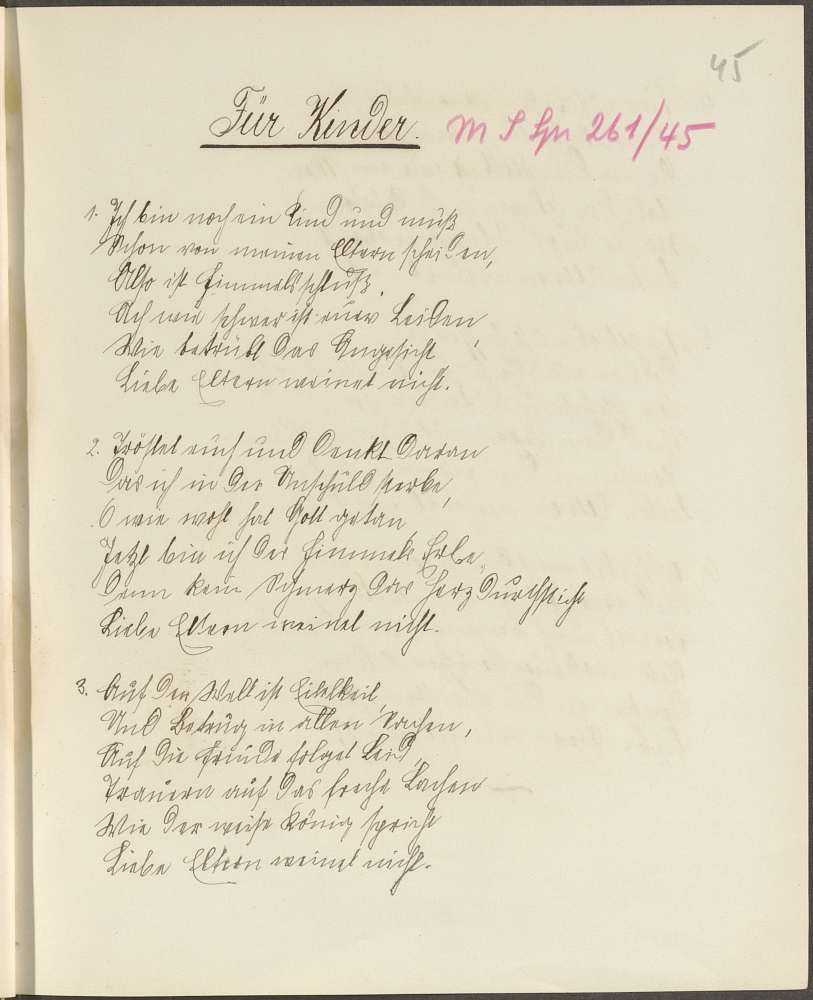 45
Für Kinder.
M S Spr 261/45
1. Ich bin noch ein Kind und muß
Schon von meinen Eltern scheiden,
Also ist Himmelsschluß,
Ach wie schwer ist euer Leiden,
Wie betrübt das Angesicht
Liebe Eltern weinet nicht.
2. Tröstet euch und denkt daran
Das ich in der Unschuld sterbe,
O wie wohl hat Gott getan,
Jetzt bin ich des Himmels Erbe,
Denn kein Schmerz das Herz durchsticht
Liebe Eltern weinet nicht.
3. Auf den Welt ist Eitelkeit,
Und Betrug in allen Sachen,
Auf die Freude folget Leid,
Trauern auf das freche Lachen
Wie der weise König spricht
Liebe Eltern weinet nicht.